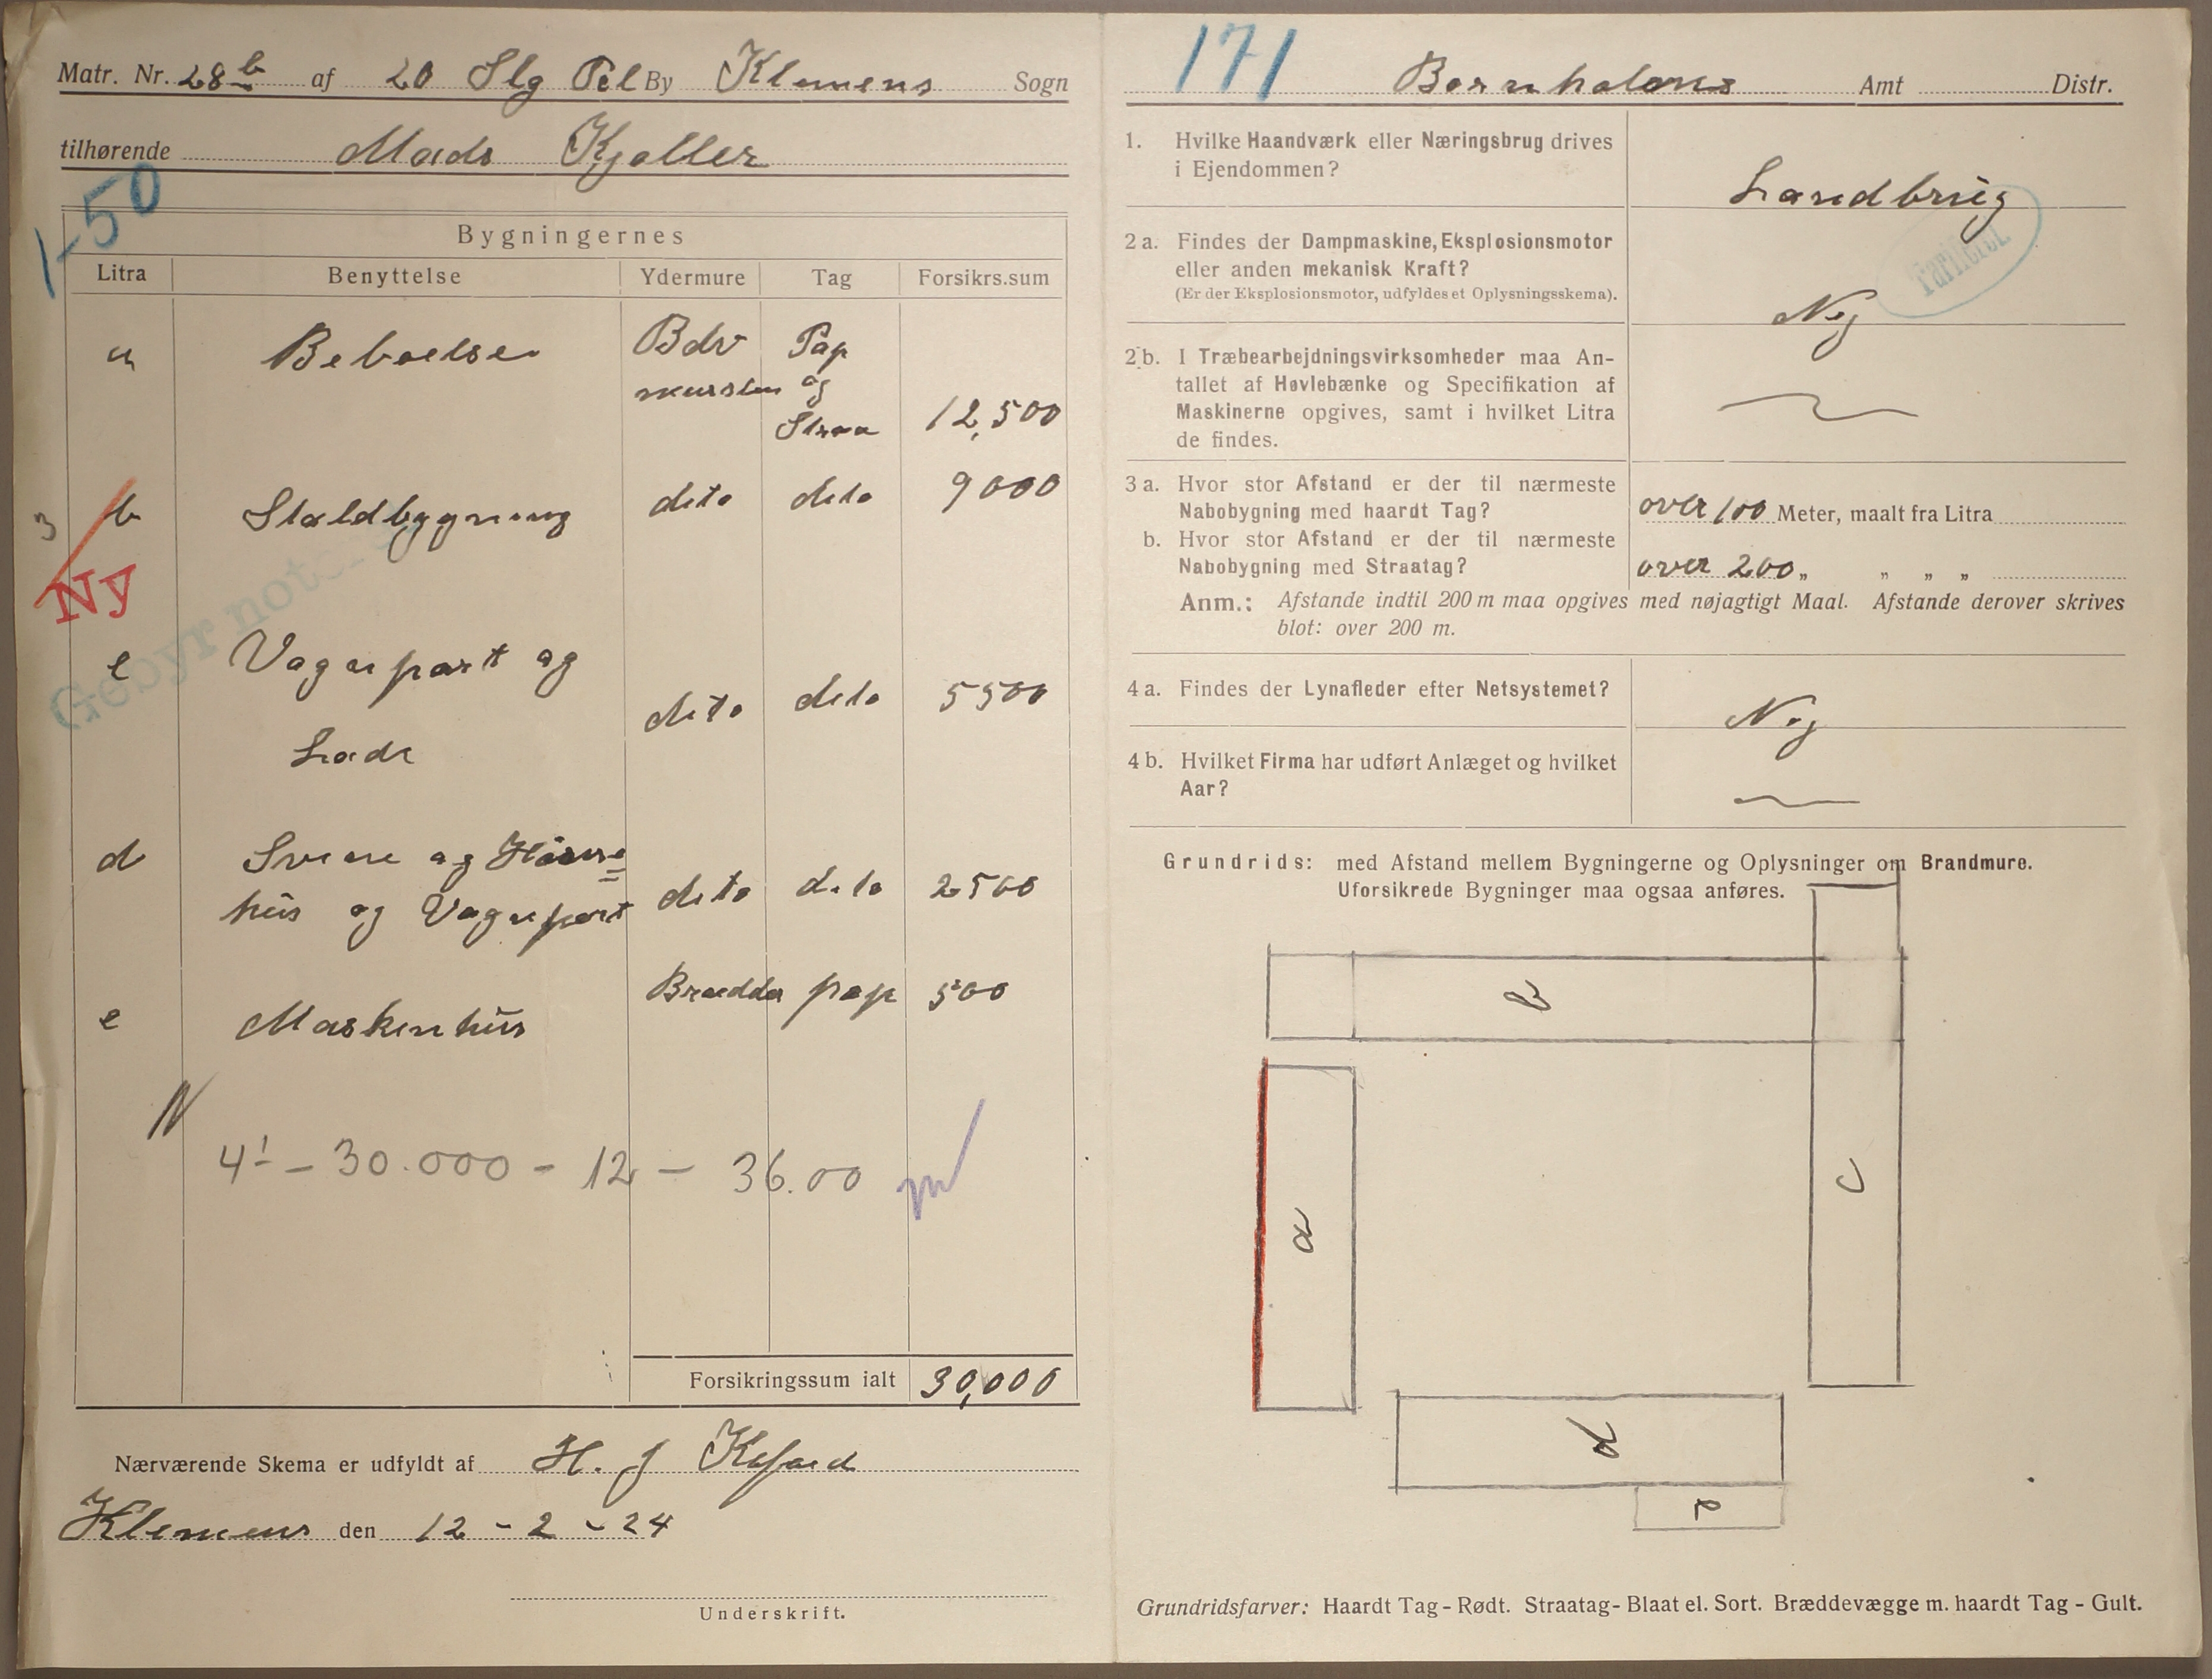 Matr. Nr. 28 b af 20 Slg Pel By Klemens Sogn
tilhørende Mads Kjøller
1-50
Bygningernes
Litra Benyttelse Ydermure Tag Forsikrs.sum
a Beboelse Bdv Pap
og
Straa 12,500
3 b Staldbygning dito dito 9000
Ny
Gebyr noteret
c Vognport og
Lade dito dito 5500
d Svine og Hønse=
hus og Vognport dito dito 2500
e Maskenhus Brædder pap 500
N
4¹ - 30.000 - 12 - 36.00
Forsikringssum ialt 30,000
Nærværende Skema er udfyldt af H. J Kofoed
Klemens den 12 - 2 - 24
Underskrift.
171 Bornholms Amt Distr.
1. Hvilke Haandværk eller Næringsbrug drives
i Ejendommen? Landbrug
Tariferet
2 a. Findes der Dampmaskine, Eksplosionsmotor
eller anden mekanisk Kraft?
(Er der Eksplosionsmotor, udfyldes et Oplysningsskema). Nej
2 b. I Træbearbejdningsvirksomheder maa An-
tallet af Høvlebænke og Specifikation af
Maskinerne opgives, samt i hvilket Litra
de findes.
3 a. Hvor stor Afstand er der til nærmeste
Nabobygning med haardt Tag? over 100 Meter, maalt fra Litra
b. Hvor stor Afstand er der til nærmeste
Nabobygning med Straatag? over 200 „ „ „ „
Anm.: Afstande indtil 200 m maa opgives med nøjagtigt Maal. Afstande derover skrives
blot: over 200 m.
4 a. Findes der Lynafleder efter Netsystemet? Nej
4 b. Hvilket Firma har udført Anlæget og hvilket
Aar?
Grundrids: med Afstand mellem Bygningerne og Oplysninger om Brandmure.
Uforsikrede Bygninger maa ogsaa anføres.
b
a
c
d
e
Grundridsfarver: Haardt Tag - Rødt. Straatag - Blaat el. Sort. Bræddevægge m. haardt Tag - Gult.